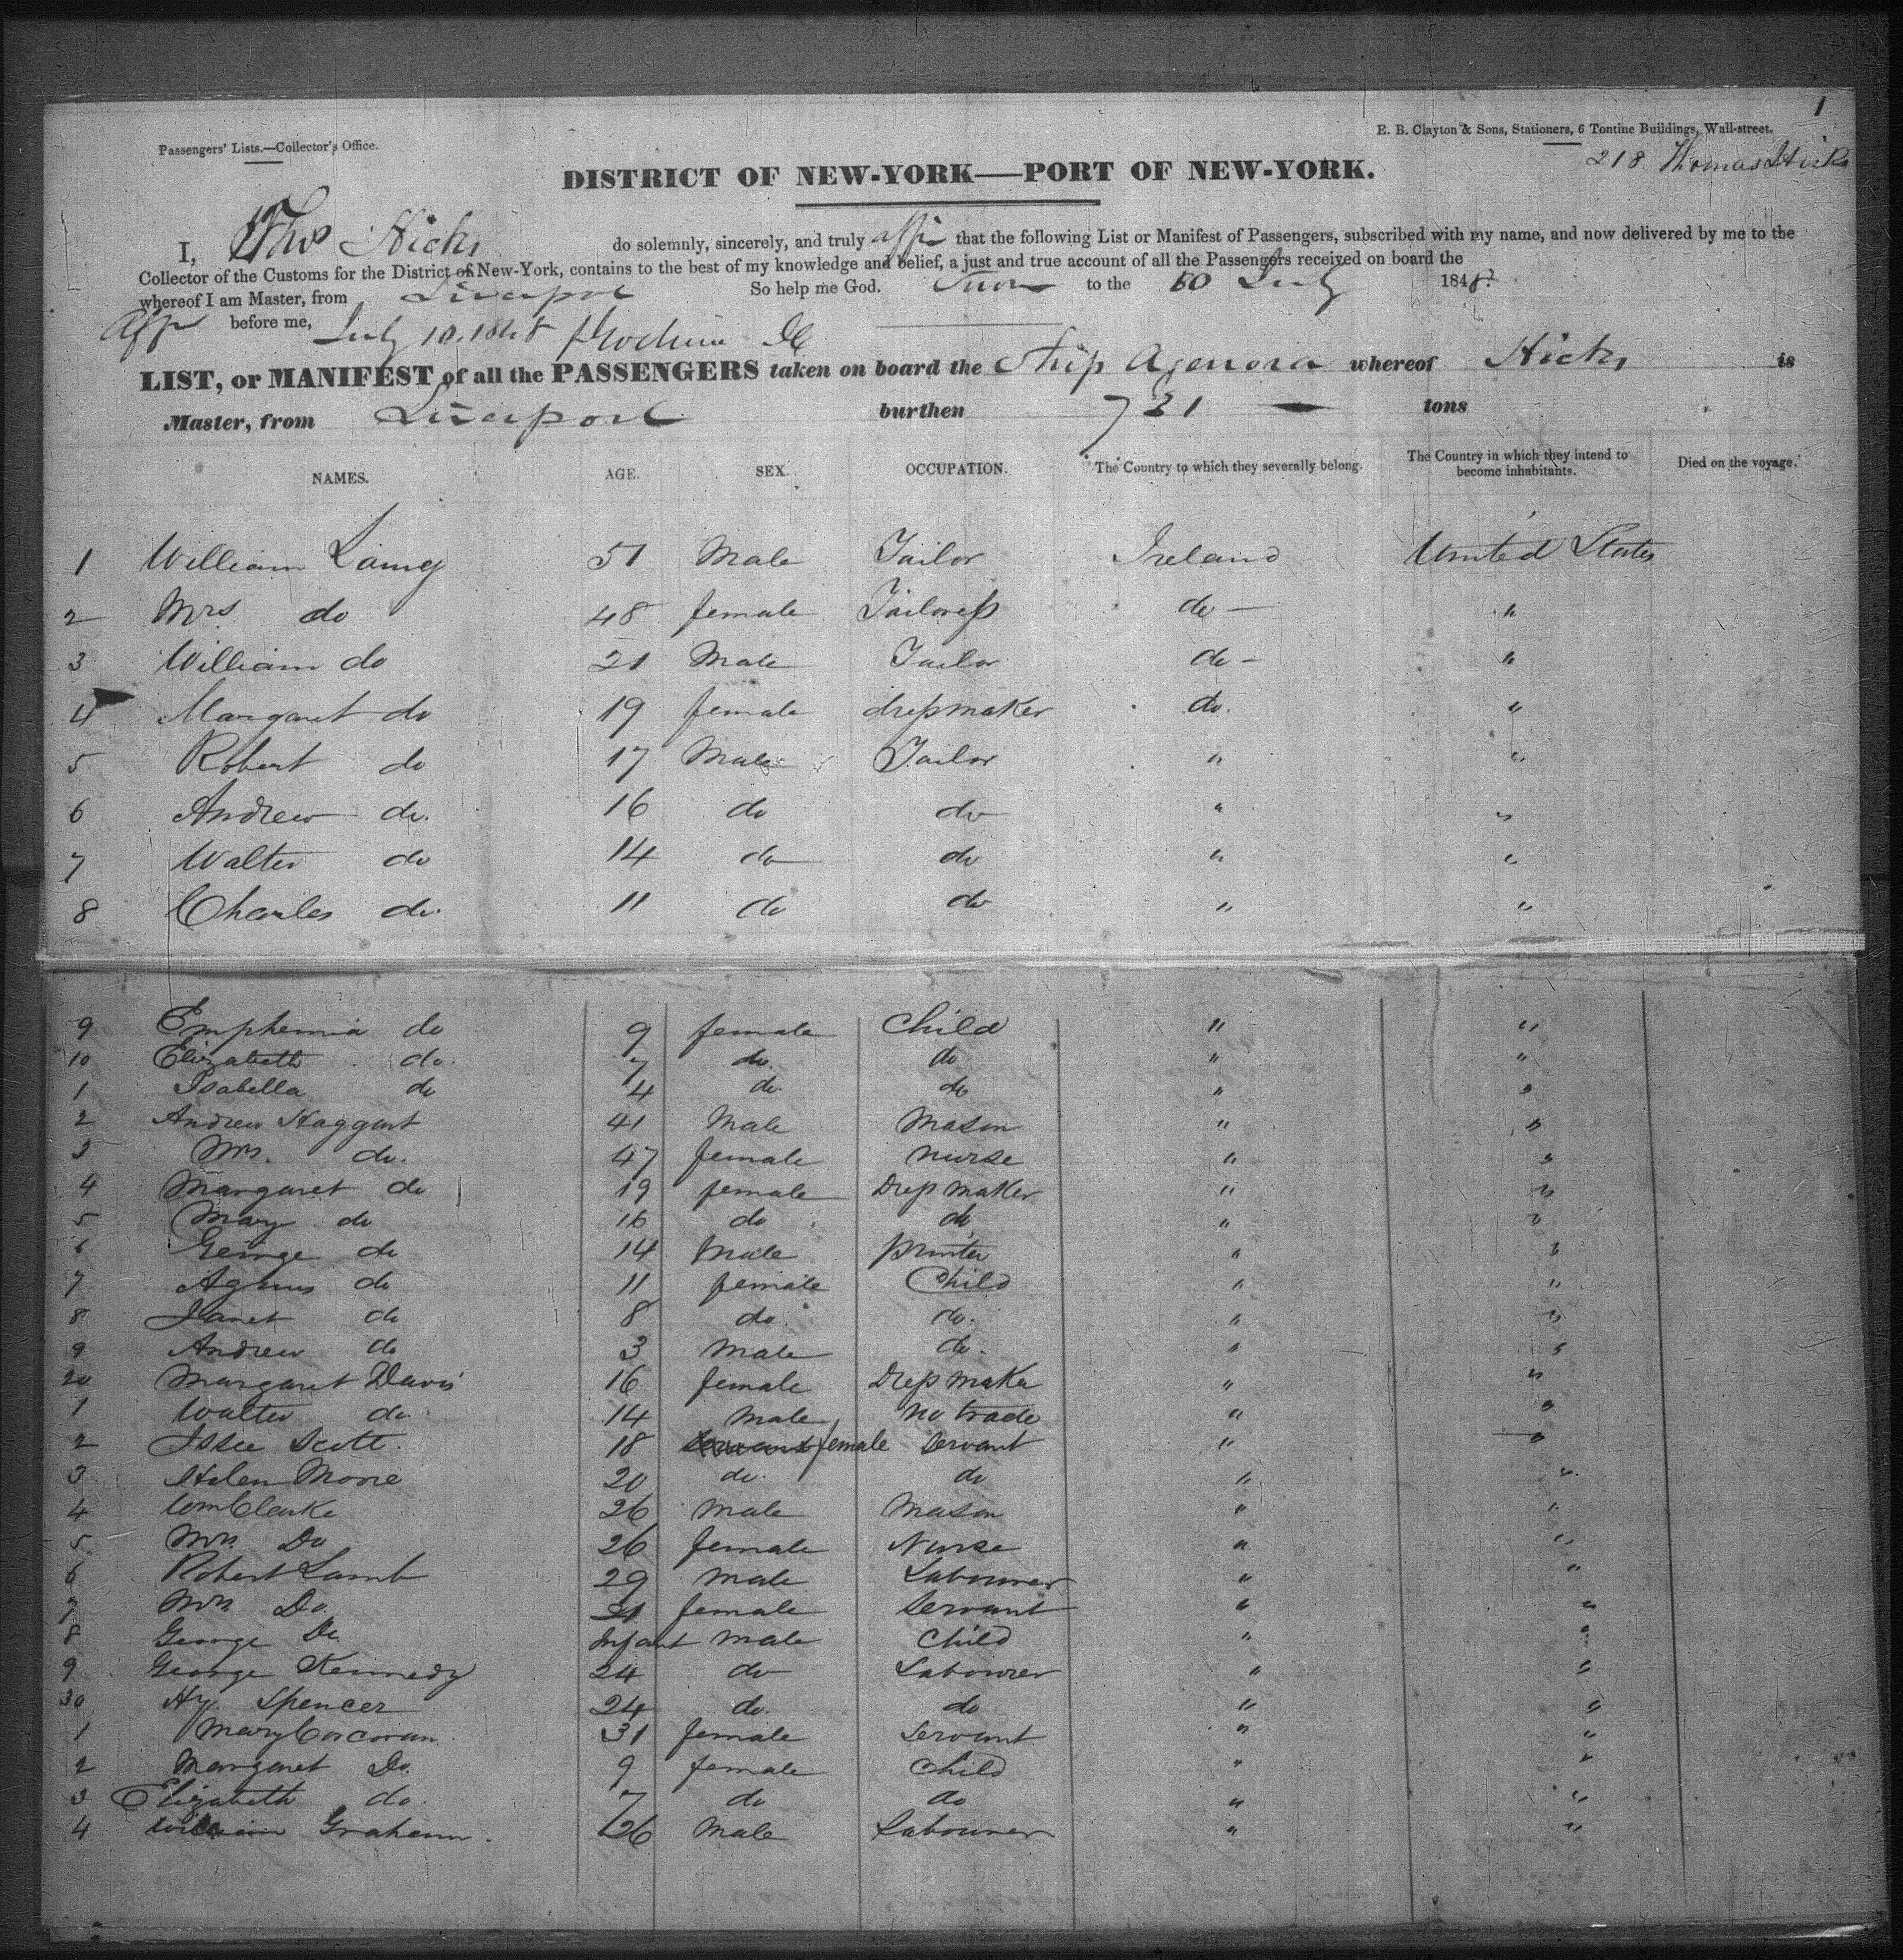 1
Passengers' Lists.—Collector's Office.
E. B. Clayton & Sons, Stationers, 6 Tontine Buildings, Wall-street.
218 Thomas Hicks
DISTRICT OF NEW-YORK——PORT OF NEW-YORK.
I, Thos Hicks do solemnly, sincerely, and truly affi that the following List or Manifest of Passengers, subscribed with my name, and now delivered by me to the
Collector of the Customs for the District of New-York, contains to the best of my knowledge and belief, a just and true account of all the Passengers received on board the
whereof I am Master, from Liverpol So help me God. to the 10 July 1848.
before me, July 10. 1848
LIST, or MANIFEST of all the PASSENGERS taken on board the Ship Agenora whereof Hicks is
Master, from Liverpool burthen 731 — tons
NAMES. AGE. SEX. OCCUPATION. The Country to which they severally belong. The Country in which they intend to become inhabitants. Died on the voyage.
1 William Laing 51 Male Tailor Ireland United States
2 Mrs do 48 female Tailoress do — "
3 William do 21 Male Tailor do — "
4 Margaret do 19 female dressmaker do. "
5 Robert do 17 Male Tailor " "
6 Andrew do. 16 do do " "
7 Walter do 14 do do " "
8 Charles do. 11 do do " "
9 Emphemia do 9 female Child " "
10 Elizabeth do. 7 do. do " "
1 Isabella do 4 do. do " "
2 Andrew Haggart 41 Male Mason " "
3 Mrs. do. 47 female nurse " "
4 Margaret do 19 female Dress maker " "
5 Mary do 16 do do " "
6 George do 14 Male printer " "
7 Agnus do 11 female Child " "
8 Janet do 8 do. do. " "
9 Andrew do 3 Male do. " "
20 Margaret Davis 16 female Dress maker " "
1 Walter do. 14 male no trade " "
2 Scott. 18 servant female servant " "
3 Helen Moore 20 do. do " "
4 Wm Clarke 26 male Mason " "
5. Mrs. Do 26 female Nurse " "
6 Robert Lamb 29 male Labourer " "
7 Mrs Do. 21 female Servant " "
8 George Do Infant male Child " "
9 George Kennedy 24 do Labourer " "
30 Hy. Spencer 24 do. do " "
1 Mary Corcoran 31 female Servant " "
2 Margaret Do. 9 female Child " "
3 Elizabeth do. 7 do do " "
4 William Graham. 26 Male Labourer " "